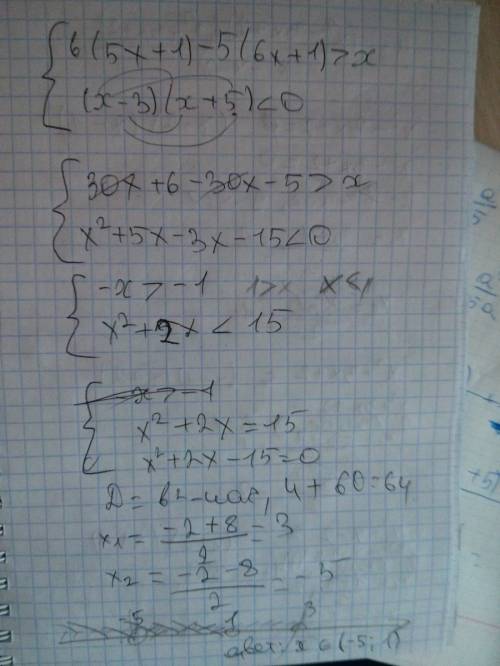 6(5x+1)-5(6x+1)>x
(x-3)(x+5)<0
30x+6-30x-5>x
x²+5x-3x-15<0
-x>-1 1>x x<1
x²+2x<15
-x>-1
x²+2x=15
x²+2x-15=0
D=b²-4ac, 4+60=64
x₁=(-2+8)/2=3
x₂=(-2-8)/2=-5
-5 1 3
ответ: x∈(-5;1)